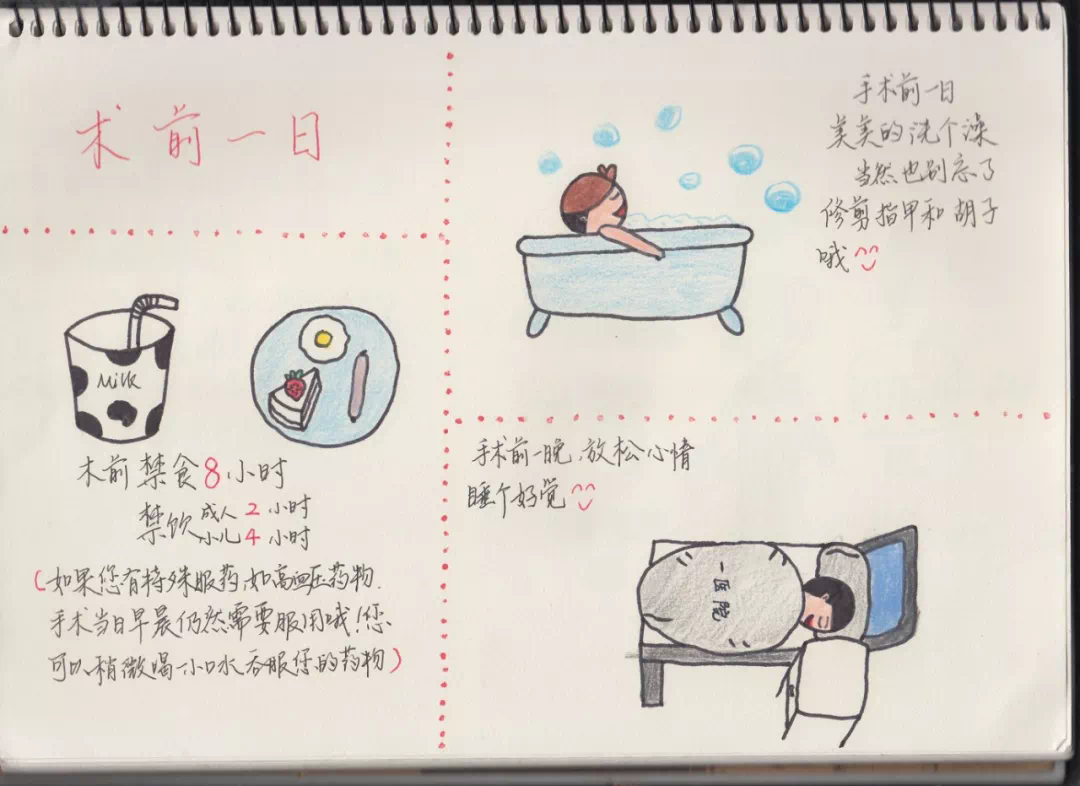 术前一日
Milk
术前禁食8小时
禁饮成人2小时
小儿4小时
(如果您有特殊服药,如高血压药物.
手术当日早晨仍然需要服用哦!您
可以稍微喝一小口水吞服您的药物)
手术前一日
美美的洗个澡
当然也别忘了
修剪指甲和胡子
哦
手术前一晚,放松心情
睡个好觉
一医院